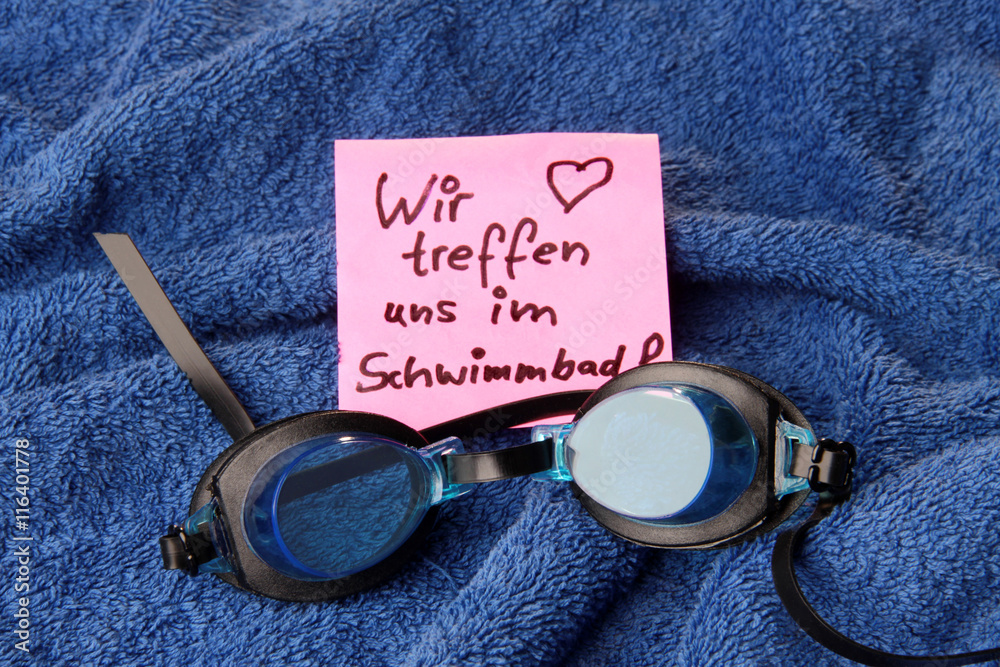 Wir ♡
treffen
uns im
Schwimmbad!
Adobe Stock | #116401778